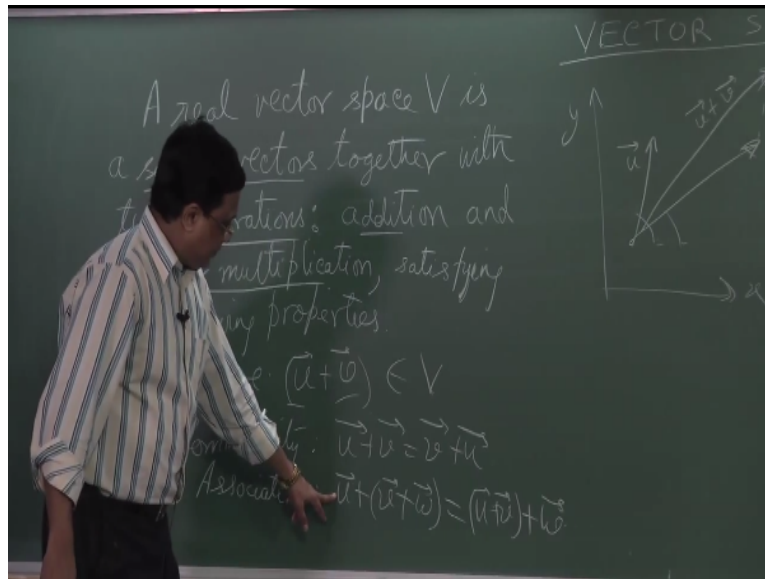 VECTOR S
A real vector space V is
a vectors together with
operations: addition and
multiplication, satisfying
properties.
(u⃗ + v⃗) ∈ V
u⃗ + v⃗ = v⃗ + u⃗
Associati u⃗ + (v⃗ + w⃗) = (u⃗ + v⃗) + w⃗
y
u⃗
u⃗ + v⃗
x